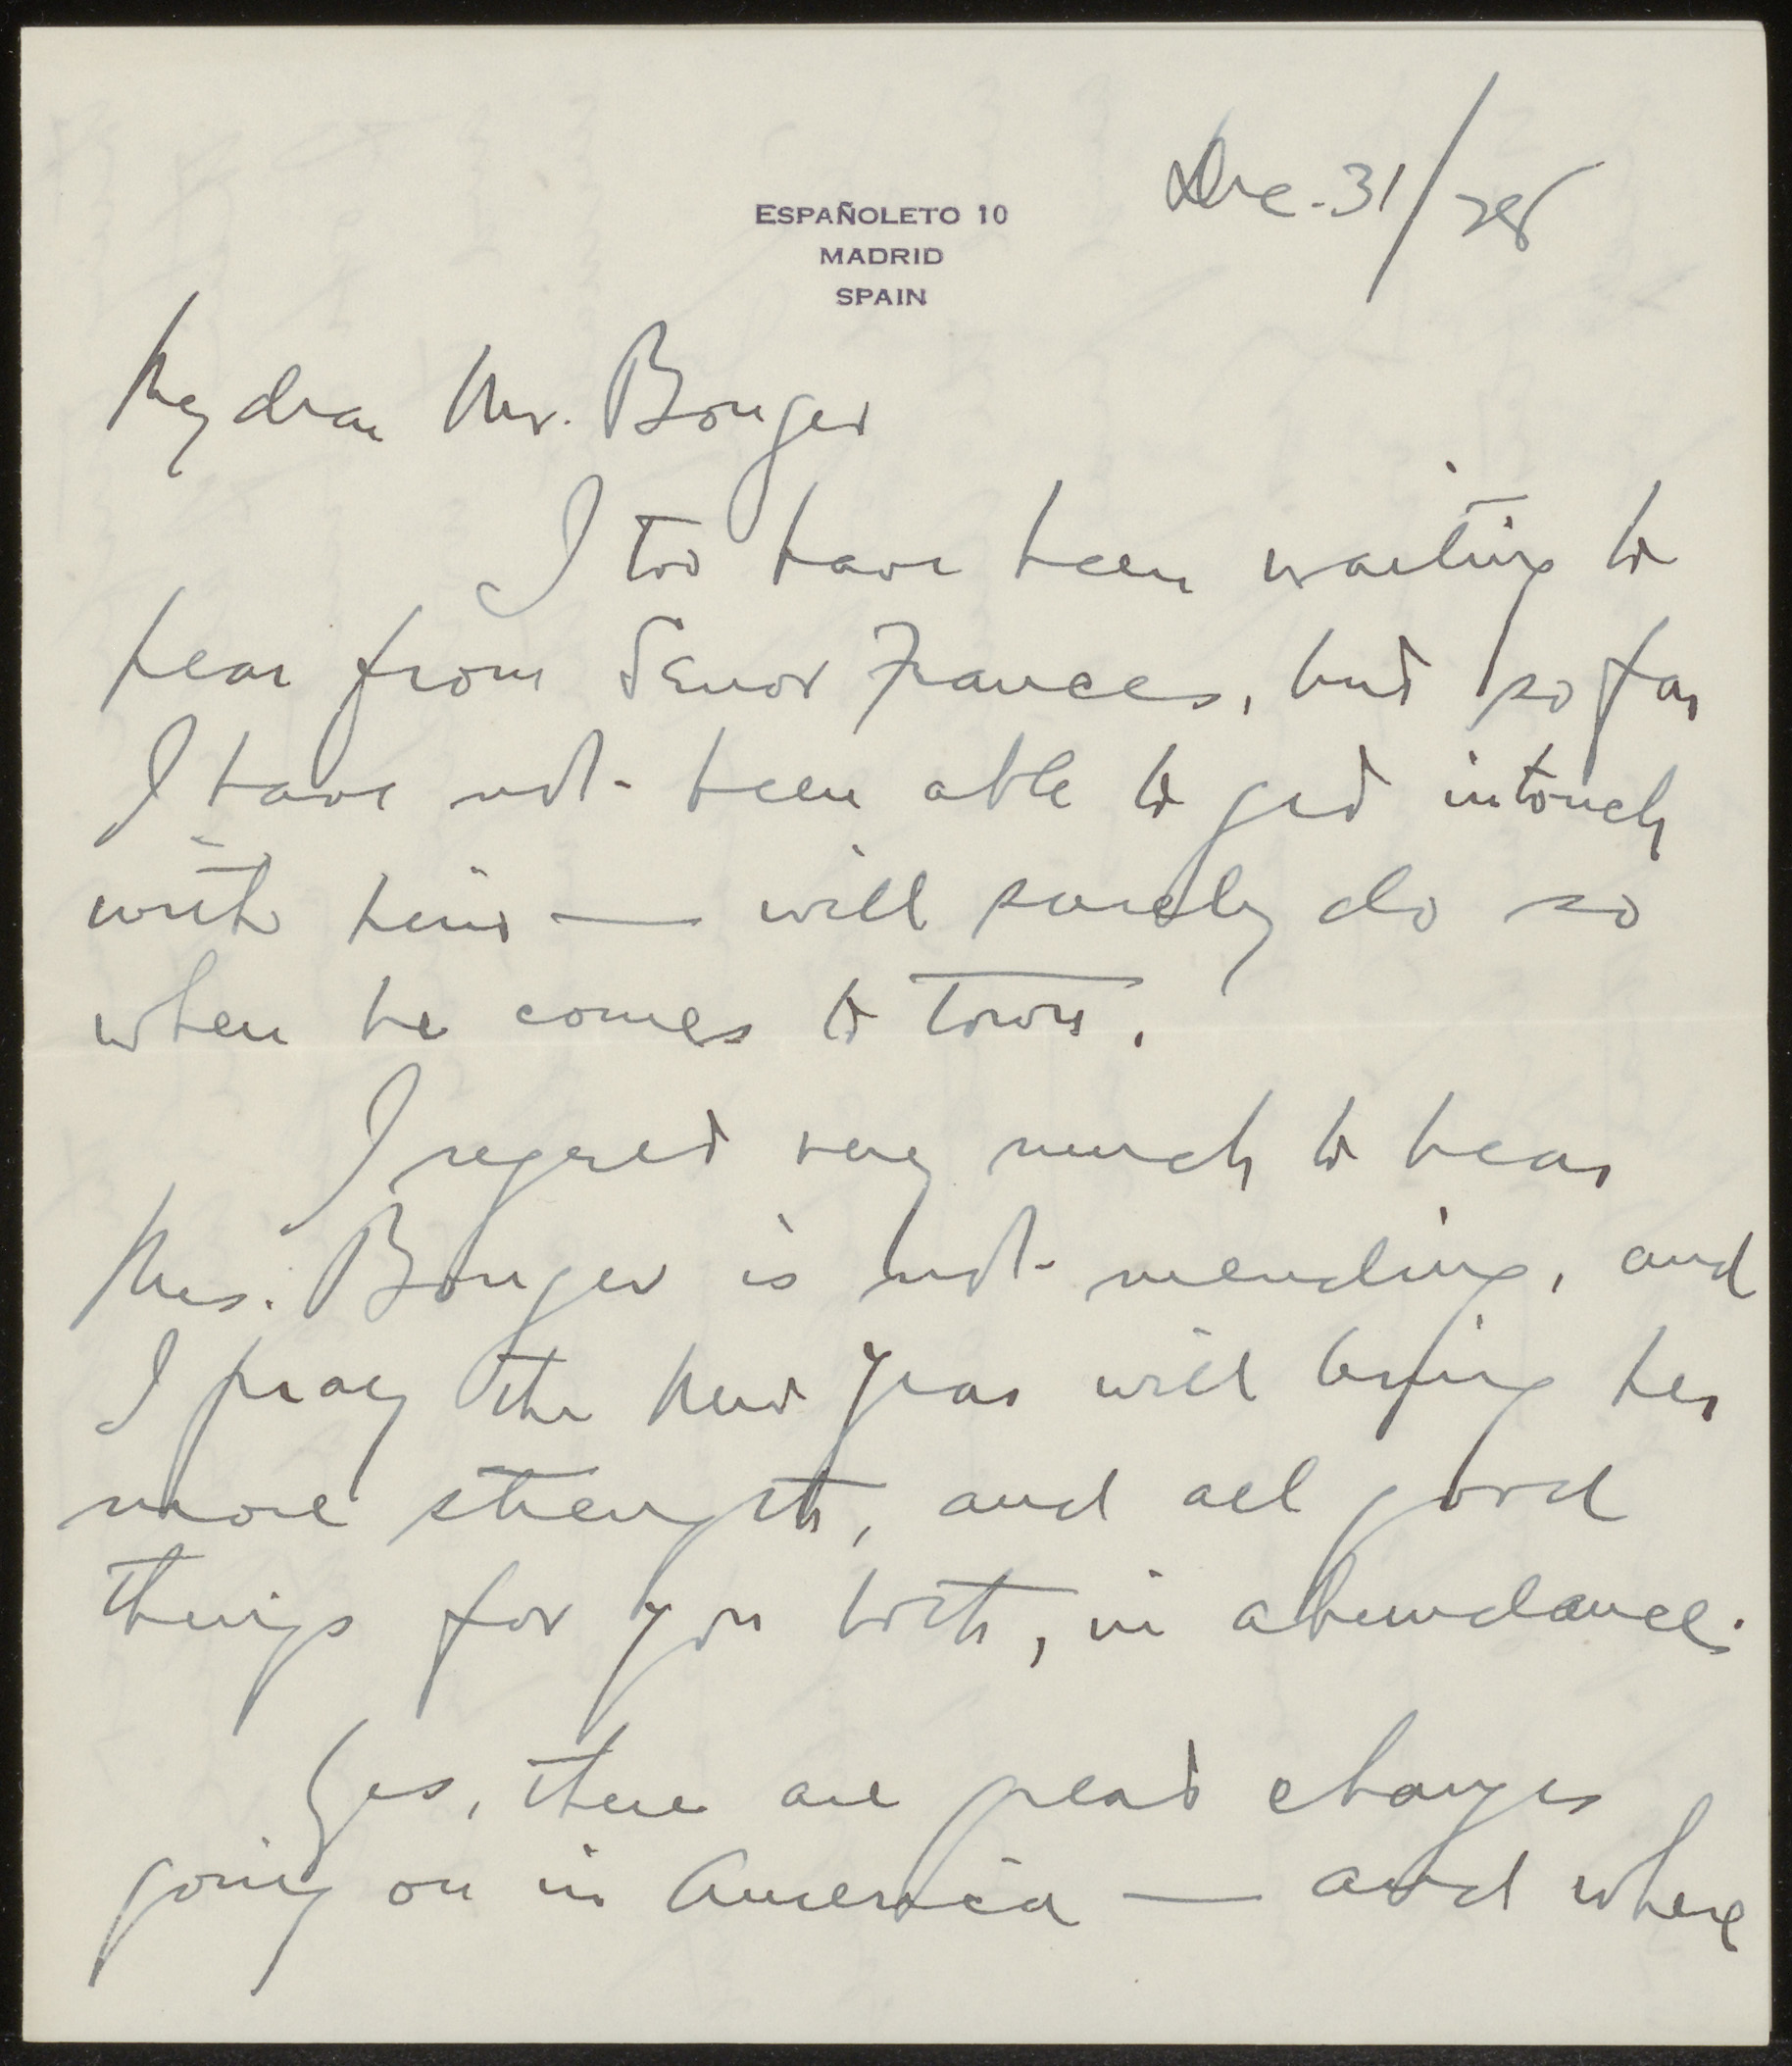 Dec. 31/28
ESPAÑOLETO 10
MADRID
SPAIN
My dear Mr. Bonger
I too have been waiting to
hear from Senor Frances, but so far
I have not been able to get in touch
with him — will surely do so
when he comes to town.
I regret very much to hear
Mrs. Bonger is not mending, and
I pray the New Year will bring her
more strength, and all good
things for you both, in abundance.
Yes, there are great changes
going on in America — and where